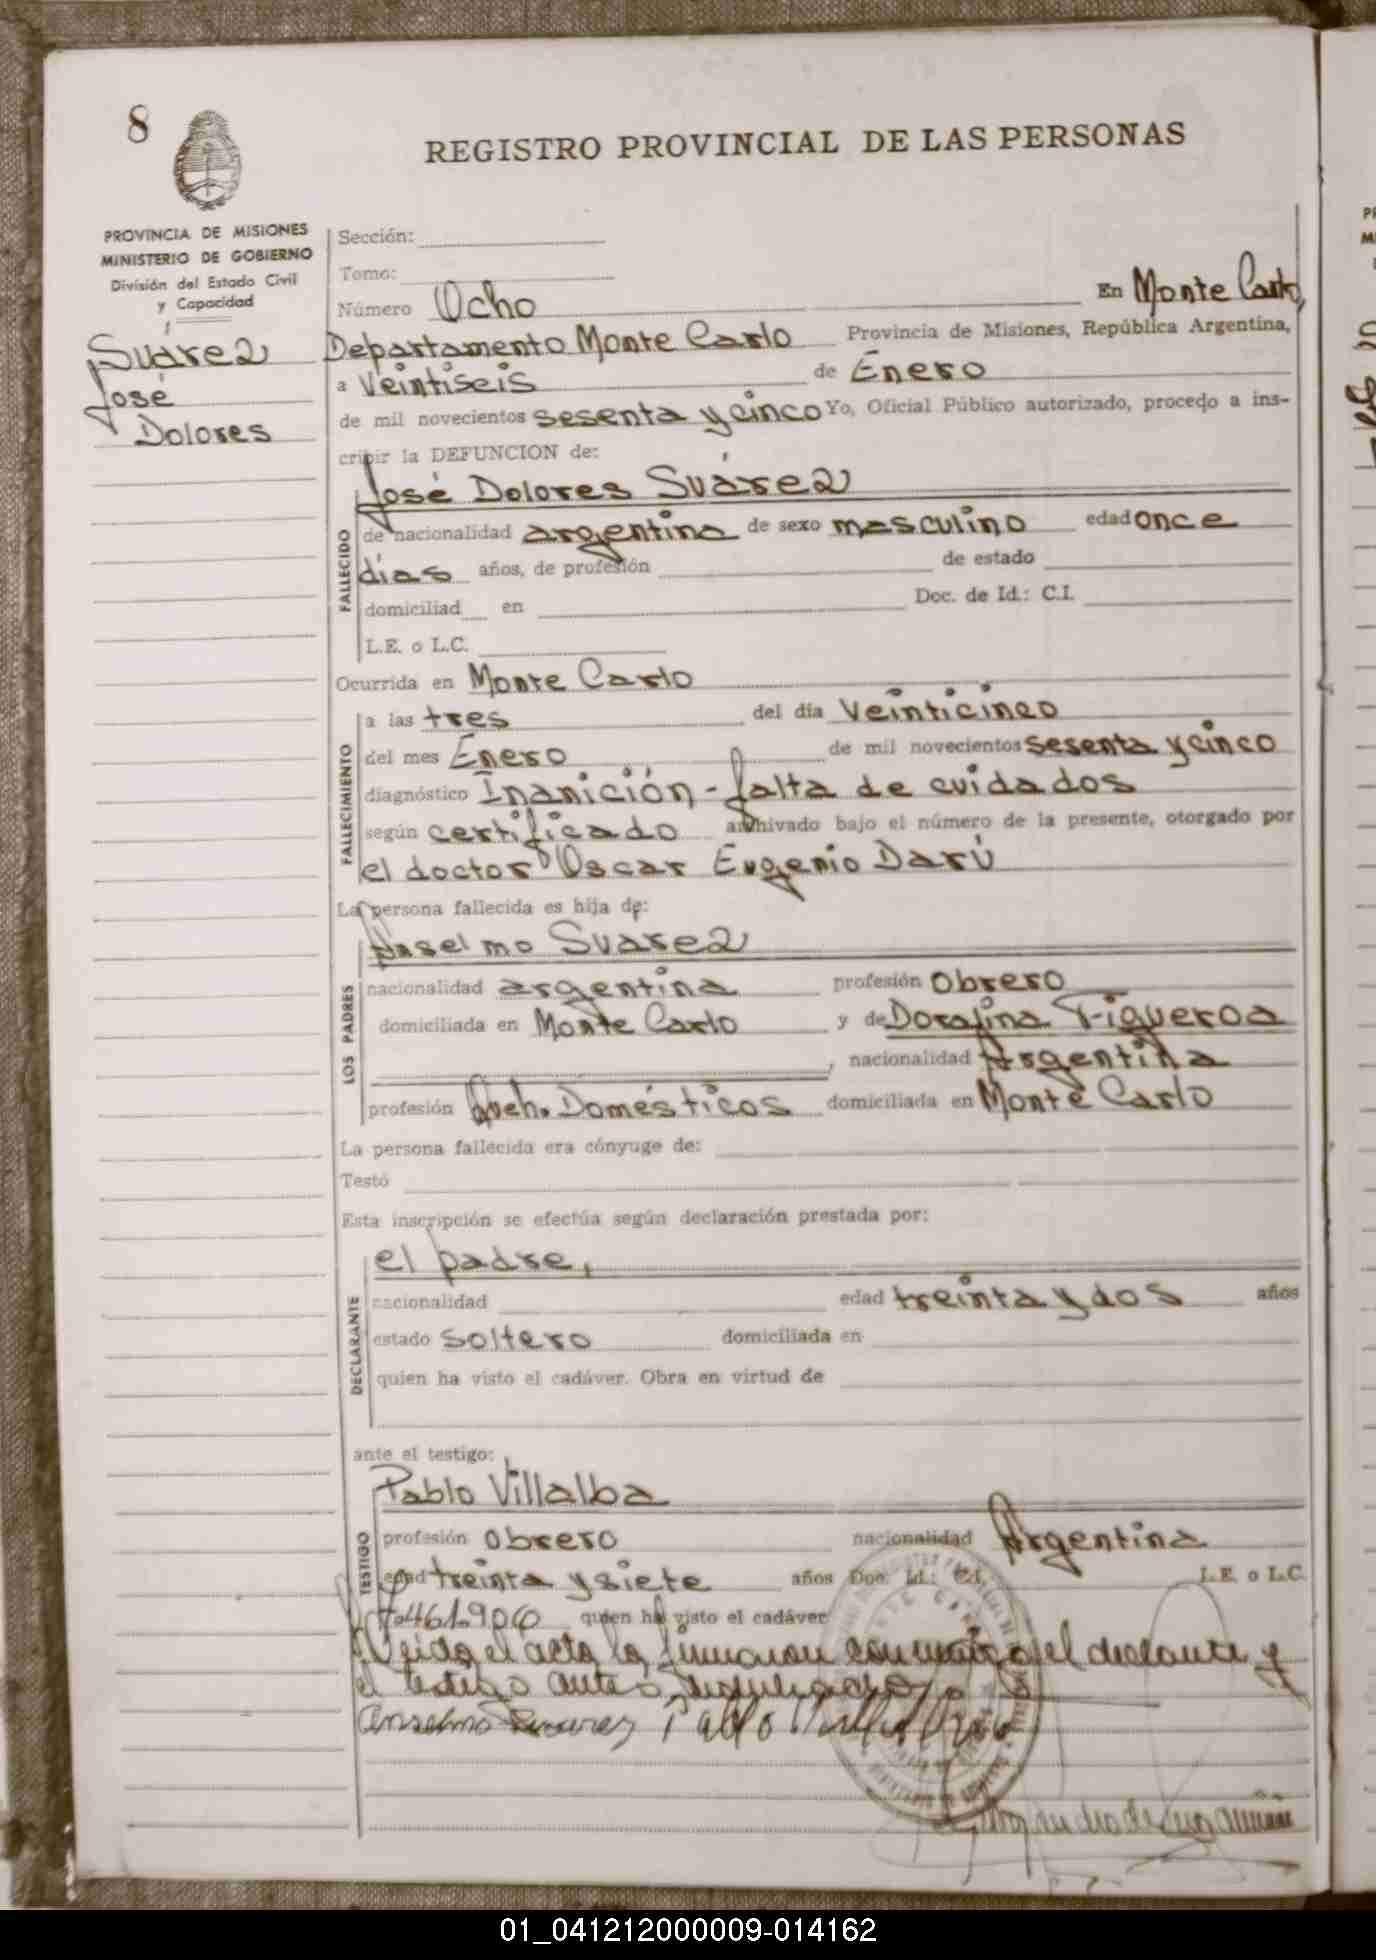 8
REGISTRO PROVINCIAL DE LAS PERSONAS
PROVINCIA DE MISIONES
MINISTERIO DE GOBIERNO
División del Estado Civil
y Capacidad
Suárez
José
Dolores
Sección:
Tomo:
Número Ocho En Monte Carlo,
Departamento Monte Carlo Provincia de Misiones, República Argentina,
a Veintiseis de Enero
de mil novecientos sesenta y cinco Yo, Oficial Público autorizado, procedo a ins-
cribir la DEFUNCION de:
José Dolores Suárez
FALLECIDO
de nacionalidad argentina de sexo masculino edad once
días años, de profesión de estado
domiciliad en Doc. de Id.: C.I.
L.E. o L.C.
Ocurrida en Monte Carlo
FALLECIMIENTO
a las tres del día Veinticinco
del mes Enero de mil novecientos sesenta y cinco
diagnóstico Inanición - falta de cuidados
según certificado archivado bajo el número de la presente, otorgado por
el doctor Oscar Eugenio Darú
La persona fallecida es hija de:
LOS PADRES
Anselmo Suarez
nacionalidad argentina profesión Obrero
domiciliada en Monte Carlo y de Dorafina Figueroa
, nacionalidad Argentina
profesión Queh. Domésticos domiciliada en Monte Carlo
La persona fallecida era cónyuge de:
Testó
Esta inscripción se efectúa según declaración prestada por:
DECLARANTE
el padre,
nacionalidad edad treinta y dos años
estado soltero domiciliada en
quien ha visto el cadáver. Obra en virtud de
ante el testigo:
TESTIGO
Pablo Villalba
profesión Obrero nacionalidad Argentina
edad treinta y siete años Doc. Id.: C.I. L.E. o L.C.
7.461.906 quien ha visto el cadáver
Leida el acta la firmaron conmigo el declarante y
el testigo antes
Anselmo Suarez Pablo
01_041212000009-014162